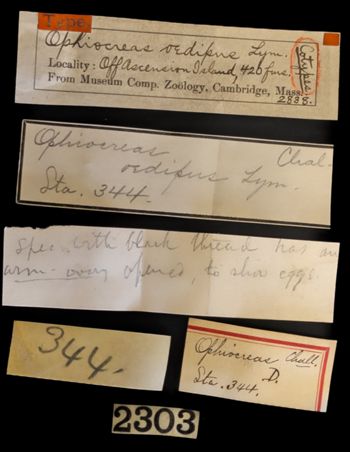 Type
Ophiocreas oedipus Lym.
Locality: Off Ascension Island, 420 fms.
Cotypes
From Museum Comp. Zoölogy, Cambridge, Mass.
2838.
Ophiocreas Chal.
oedipus Lym.
Sta. 344.
Spec. with black thread has an
arm-ovary opened, to show eggs.
344.
Ophiocreas Chall.
D.
Sta. 344.
2303